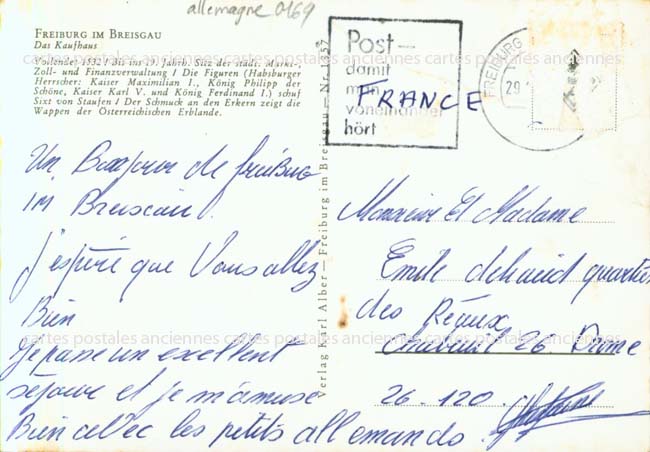 allemagne 0169
FREIBURG IM BREISGAU
Das Kaufhaus
Vollendet 1532 / Bis ins 19. Jahrh. Sitz der städt. Markt-,
Zoll- und Finanzverwaltung / Die Figuren (Habsburger
Herrscher: Kaiser Maximilian I., König Philipp der
Schöne, Kaiser Karl V. und König Ferdinand I.) schuf
Sixt von Staufen / Der Schmuck an den Erkern zeigt die
Wappen der Österreichischen Erblande.
Un Bonjour de freiburg
im Breisgau.
J'espère que Vous allez
Bien
Je passe un excellent
séjour et je m'amuse
Bien avec les petits allemands.
Verlag Karl Alber — Freiburg im Breisgau — Nr.
Post-
damit
man
voneinander
hört
FRANCE
FREIBURG
29
Monsieur Et Madame
Emile quartier
des Réaux
26 Drome
26.120.
cartes postales anciennes cartes postales anciennes cartes postales anciennes